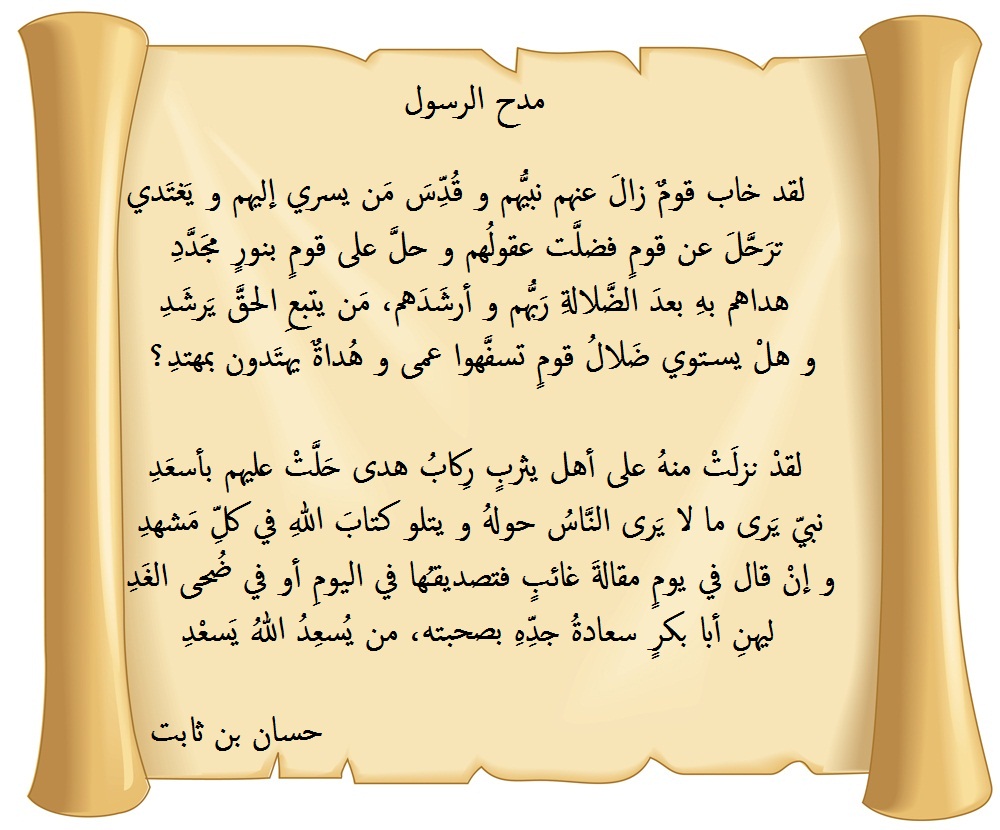 مدح الرسول
لقد خاب قومٌ زالَ عنهم نبيُّهم و قُدِّسَ مَن يسري إليهم و يَغتَدي
ترَحَّلَ عن قومٍ فضلَّت عقولُهم و حلَّ على قومٍ بنورٍ مجَدَّدِ
هداهم بهِ بعدَ الضَّلالةِ رَبُّهم و أرشَدَهم، مَن يتبعِ الحقَّ يَرشَدِ
و هلْ يستوي ضَلالُ قومٍ تسفَّهوا عمى و هُداةٌ يهتَدون بمهتدِ؟
لقدْ نزلَتْ منهُ على أهل يثربٍ رِكابُ هدى حَلَّتْ عليهم بأسعَدِ
نبيّ يَرى ما لا يَرى النَّاسُ حولهُ و يتلو كتابَ اللهِ في كلِّ مَشهدِ
و إنْ قال في يومٍ مقالةَ غائبٍ فتصديقُها في اليومِ أو في ضُحى الغَدِ
ليهنِ أبا بكرٍ سعادةُ جدِّهِ بصحبته، من يُسعِدُ اللهُ يَسعْدِ
حسان بن ثابت